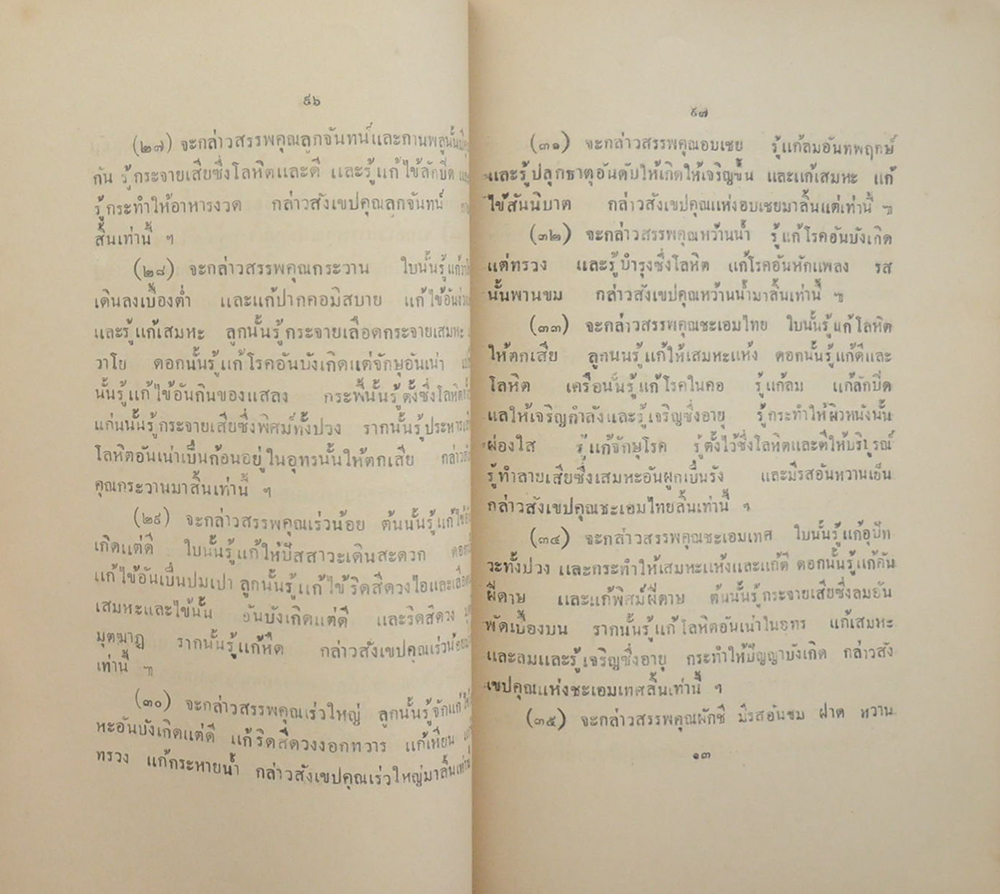 ๙๖
(๒๗) จะกล่าวสรรพคุณลูกจันทน์และกานพลูนั้น
กัน รู้กระจายเสียซึ่งโลหิตและดี และรู้แก้ไข้ลักปิด
รู้กระทำให้อาหารงวด กล่าวสังเขปคุณลูกจันทน์
สิ้นเท่านี้ ฯ
(๒๘) จะกล่าวสรรพคุณกระวาน ใบนั้นรู้แก้
เดินลงเบื้องต่ำ และแก้ปากคอมิสบาย แก้ไข้อัน
และรู้แก้เสมหะ ลูกนั้นรู้กระจายเลือดกระจายเสมหะ
วาโย ดอกนั้นรู้แก้โรคอันบังเกิดแต่จักษุอันเน่า
นั้นรู้แก้ไข้อันกินของแสลง กระพี้นั้นรู้ตั้งซึ่งโลหิต
แก่นนั้นรู้กระจายเสียซึ่งพิศม์ทั้งปวง รากนั้นรู้ประหาร
โลหิตอันเน่าเป็นก้อนอยู่ในอุทรนั้นให้ตกเสีย กล่าว
คุณกระวานมาสิ้นเท่านี้ ฯ
(๒๙) จะกล่าวสรรพคุณเร่วน้อย ต้นนั้นรู้แก้ไข้
เกิดแต่ดี ใบนั้นรู้แก้ให้ปัสสาวะเดินสะดวก
แก้ไข้อันเป็นปมเปา ลูกนั้นรู้แก้ไข้ริดสีดวงไอและ
เสมหะและไข้นั้น อันบังเกิดแต่ดี และริดสีดวง
มุตฆาฏ รากนั้นรู้แก้หืด กล่าวสังเขปคุณเร่วน้อย
เท่านี้ ๚
(๓๐) จะกล่าวสรรพคุณเร่วใหญ่ ลูกนั้นรู้จักแก่
หะอันบังเกิดแต่ดี แก้ริดสีดวงงอกทวาร แก้เหียน
ทรวง แก้กระหายน้ำ กล่าวสังเขปคุณเร่วใหญ่มาสิ้น
๙๗
(๓๑) จะกล่าวสรรพคุณอบเชย รู้แก้ลมอันทพฤกษ์
และรู้ปลุกธาตุอันดับให้เกิดให้เจริญขึ้น และแก้เสมหะ แก้
ไข้สันนิบาต กล่าวสังเขปคุณแห่งอบเชยมาสิ้นแต่เท่านี้ ๚
(๓๒) จะกล่าวสรรพคุณหว้านน้ำ รู้แก้โรคอันบังเกิด
แต่ทรวง และรู้บำรุงซึ่งโลหิต แก้โรคอันหักแพลง รส
นั้นพานขม กล่าวสังเขปคุณหว้านน้ำมาสิ้นเท่านี้ ๚
(๓๓) จะกล่าวสรรพคุณชะเอมไทย ใบนั้นรู้แก้โลหิต
ให้ตกเสีย ลูกนนรู้แก้ให้เสมหะแห้ง ดอกนั้นรู้แก้ดีและ
โลหิต เครือนั้นรู้แก้โรคในคอ รู้แก้ลม แก้ลักปิด
แลให้เจริญกำลังและรู้เจริญซึ่งอายุ รู้กระทำให้ผิวหนังนั้น
ผ่องใส รู้แก้จักษุโรค รู้ตั้งไว้ซึ่งโลหิตและดีให้บริบูรณ์
รู้ทำลายเสียซึ่งเสมหะอันผูกเป็นรัง และมีรสอันหวานเย็น
กล่าวสังเขปคุณชะเอมไทยสิ้นเท่านี้ ฯ
(๓๔) จะกล่าวสรรพคุณชะเอมเทศ ใบนั้นรู้แก้อุปัท
วะทั้งปวง และกระทำให้เสมหะแห้งและแก้ดี ดอกนั้นรู้แก้คัน
ฝีดาษ และแก้พิสม์ฝีดาษ ต้นนั้นรู้กระจายเสียซึ่งลมอัน
พัดเบื้องบน รากนั้นรู้แก้โลหิตอันเน่าในอุทร แก้เสมหะ
และลมและรู้เจริญซึ่งอายุ กระทำให้ปัญญาบังเกิด กล่าวสัง
เขปคุณแห่งชะเอมเทศสิ้นเท่านี้ ฯ
(๓๕) จะกล่าวสรรพคุณผักชี มีรสอันขม ฝาด หวาน
๑๓